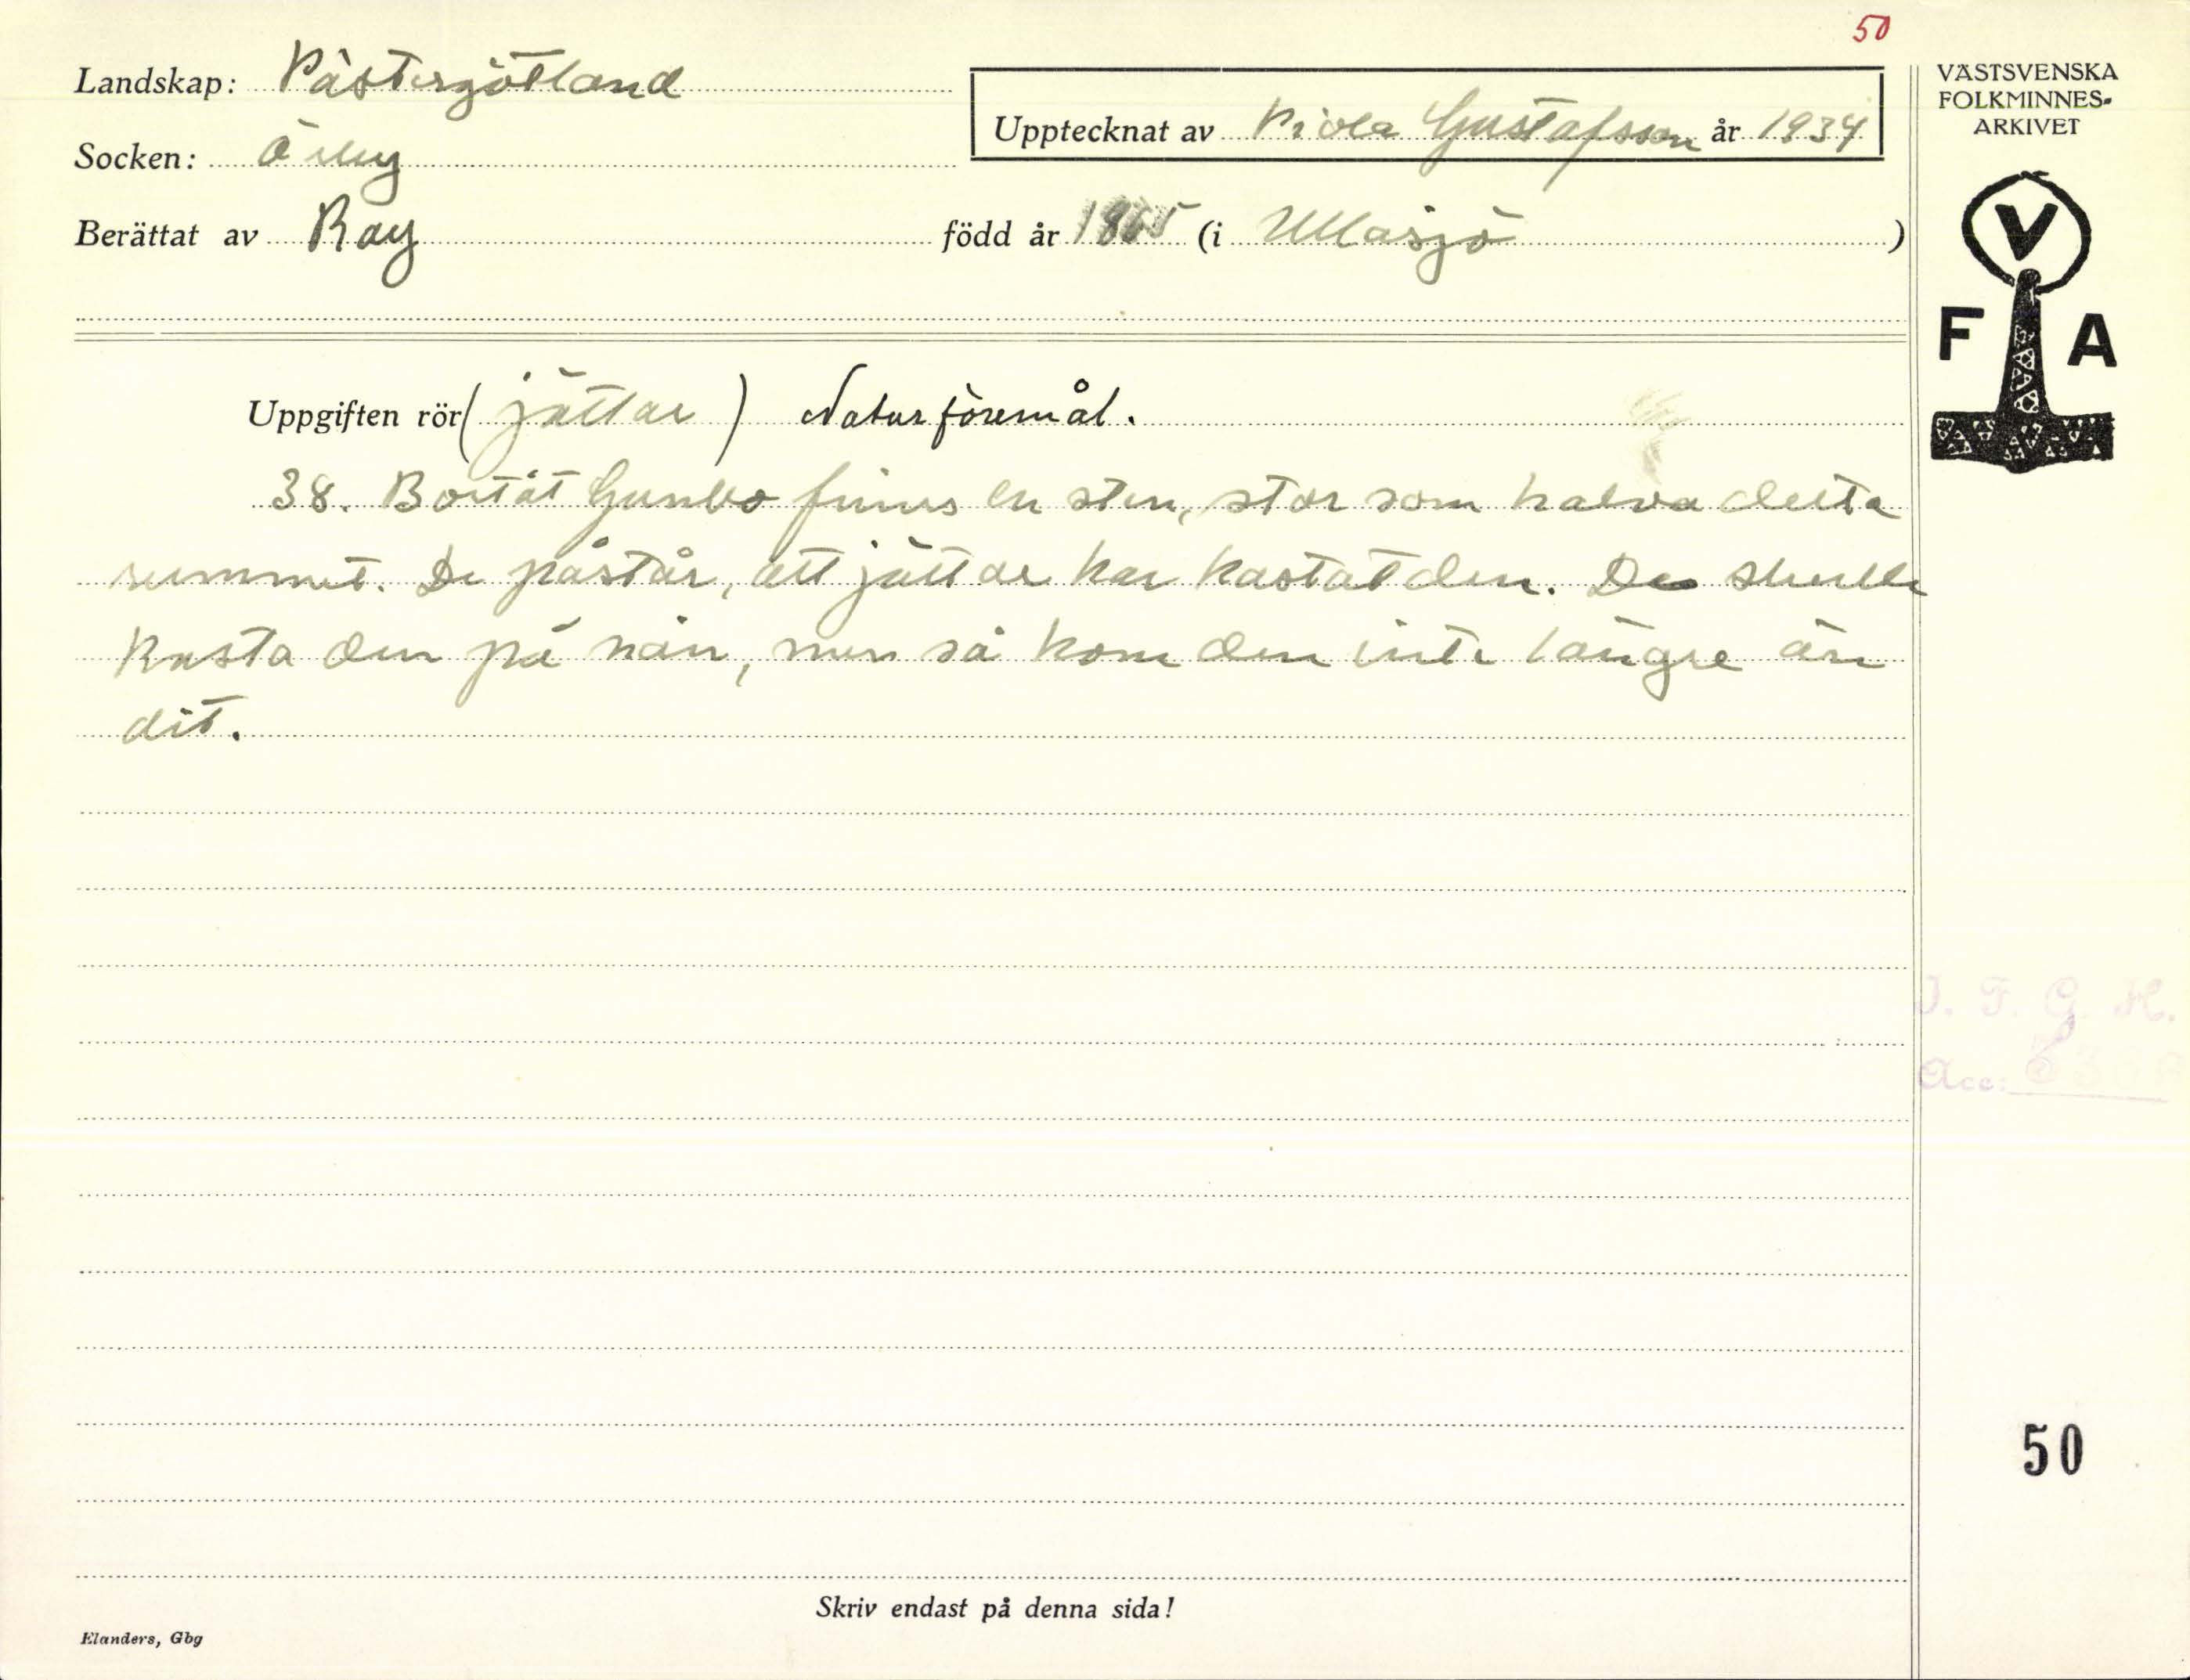 50
Landskap: Västergötland
Upptecknat av Viola Gustafsson år 1934
Socken: Örby
Berättat av Ray född år 1865 (i Ullasjö )
VÄSTSVENSKA
FOLKMINNES-
ARKIVET
V
F A
Uppgiften rör (jättar) Naturföremål.
38. Bortåt Gunbo finns en sten, stor som halva detta
rummet. De påstår, att jättar har kastat den. De skulle
kasta den på nån, men så kom den inte längre än
dit.
I. F. G. H.
Acc:
50
Skriv endast på denna sida!
Elanders, Gbg